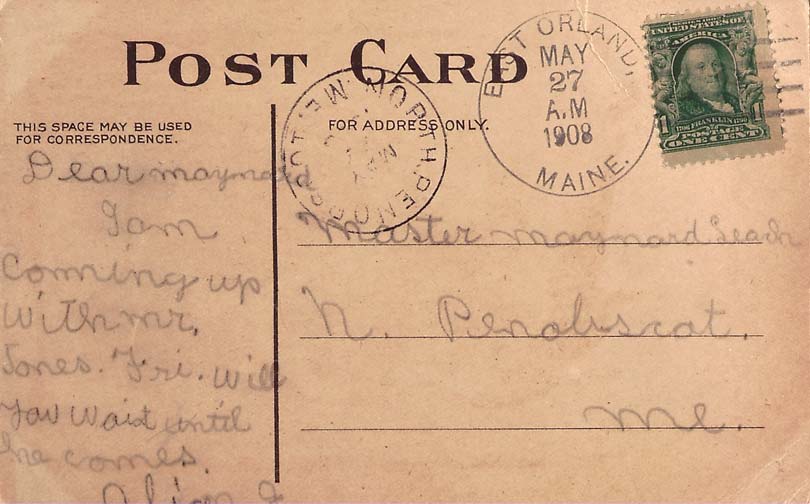 POST CARD
THIS SPACE MAY BE USED
FOR CORRESPONDENCE.
FOR ADDRESS ONLY.
NORTH PENOBSCOT, ME.
MAY
EAST ORLAND,
MAY
27
A.M
1908
MAINE.
SERIES 1902
UNITED STATES OF
AMERICA
1706 FRANKLIN 1790
1 1
POSTAGE
ONE CENT
Dear maynard
I am
Coming up
With mr,
Jones. Fri. will
You Wait until
he comes.
Master maynard Leach
N. Penobscat.
me.